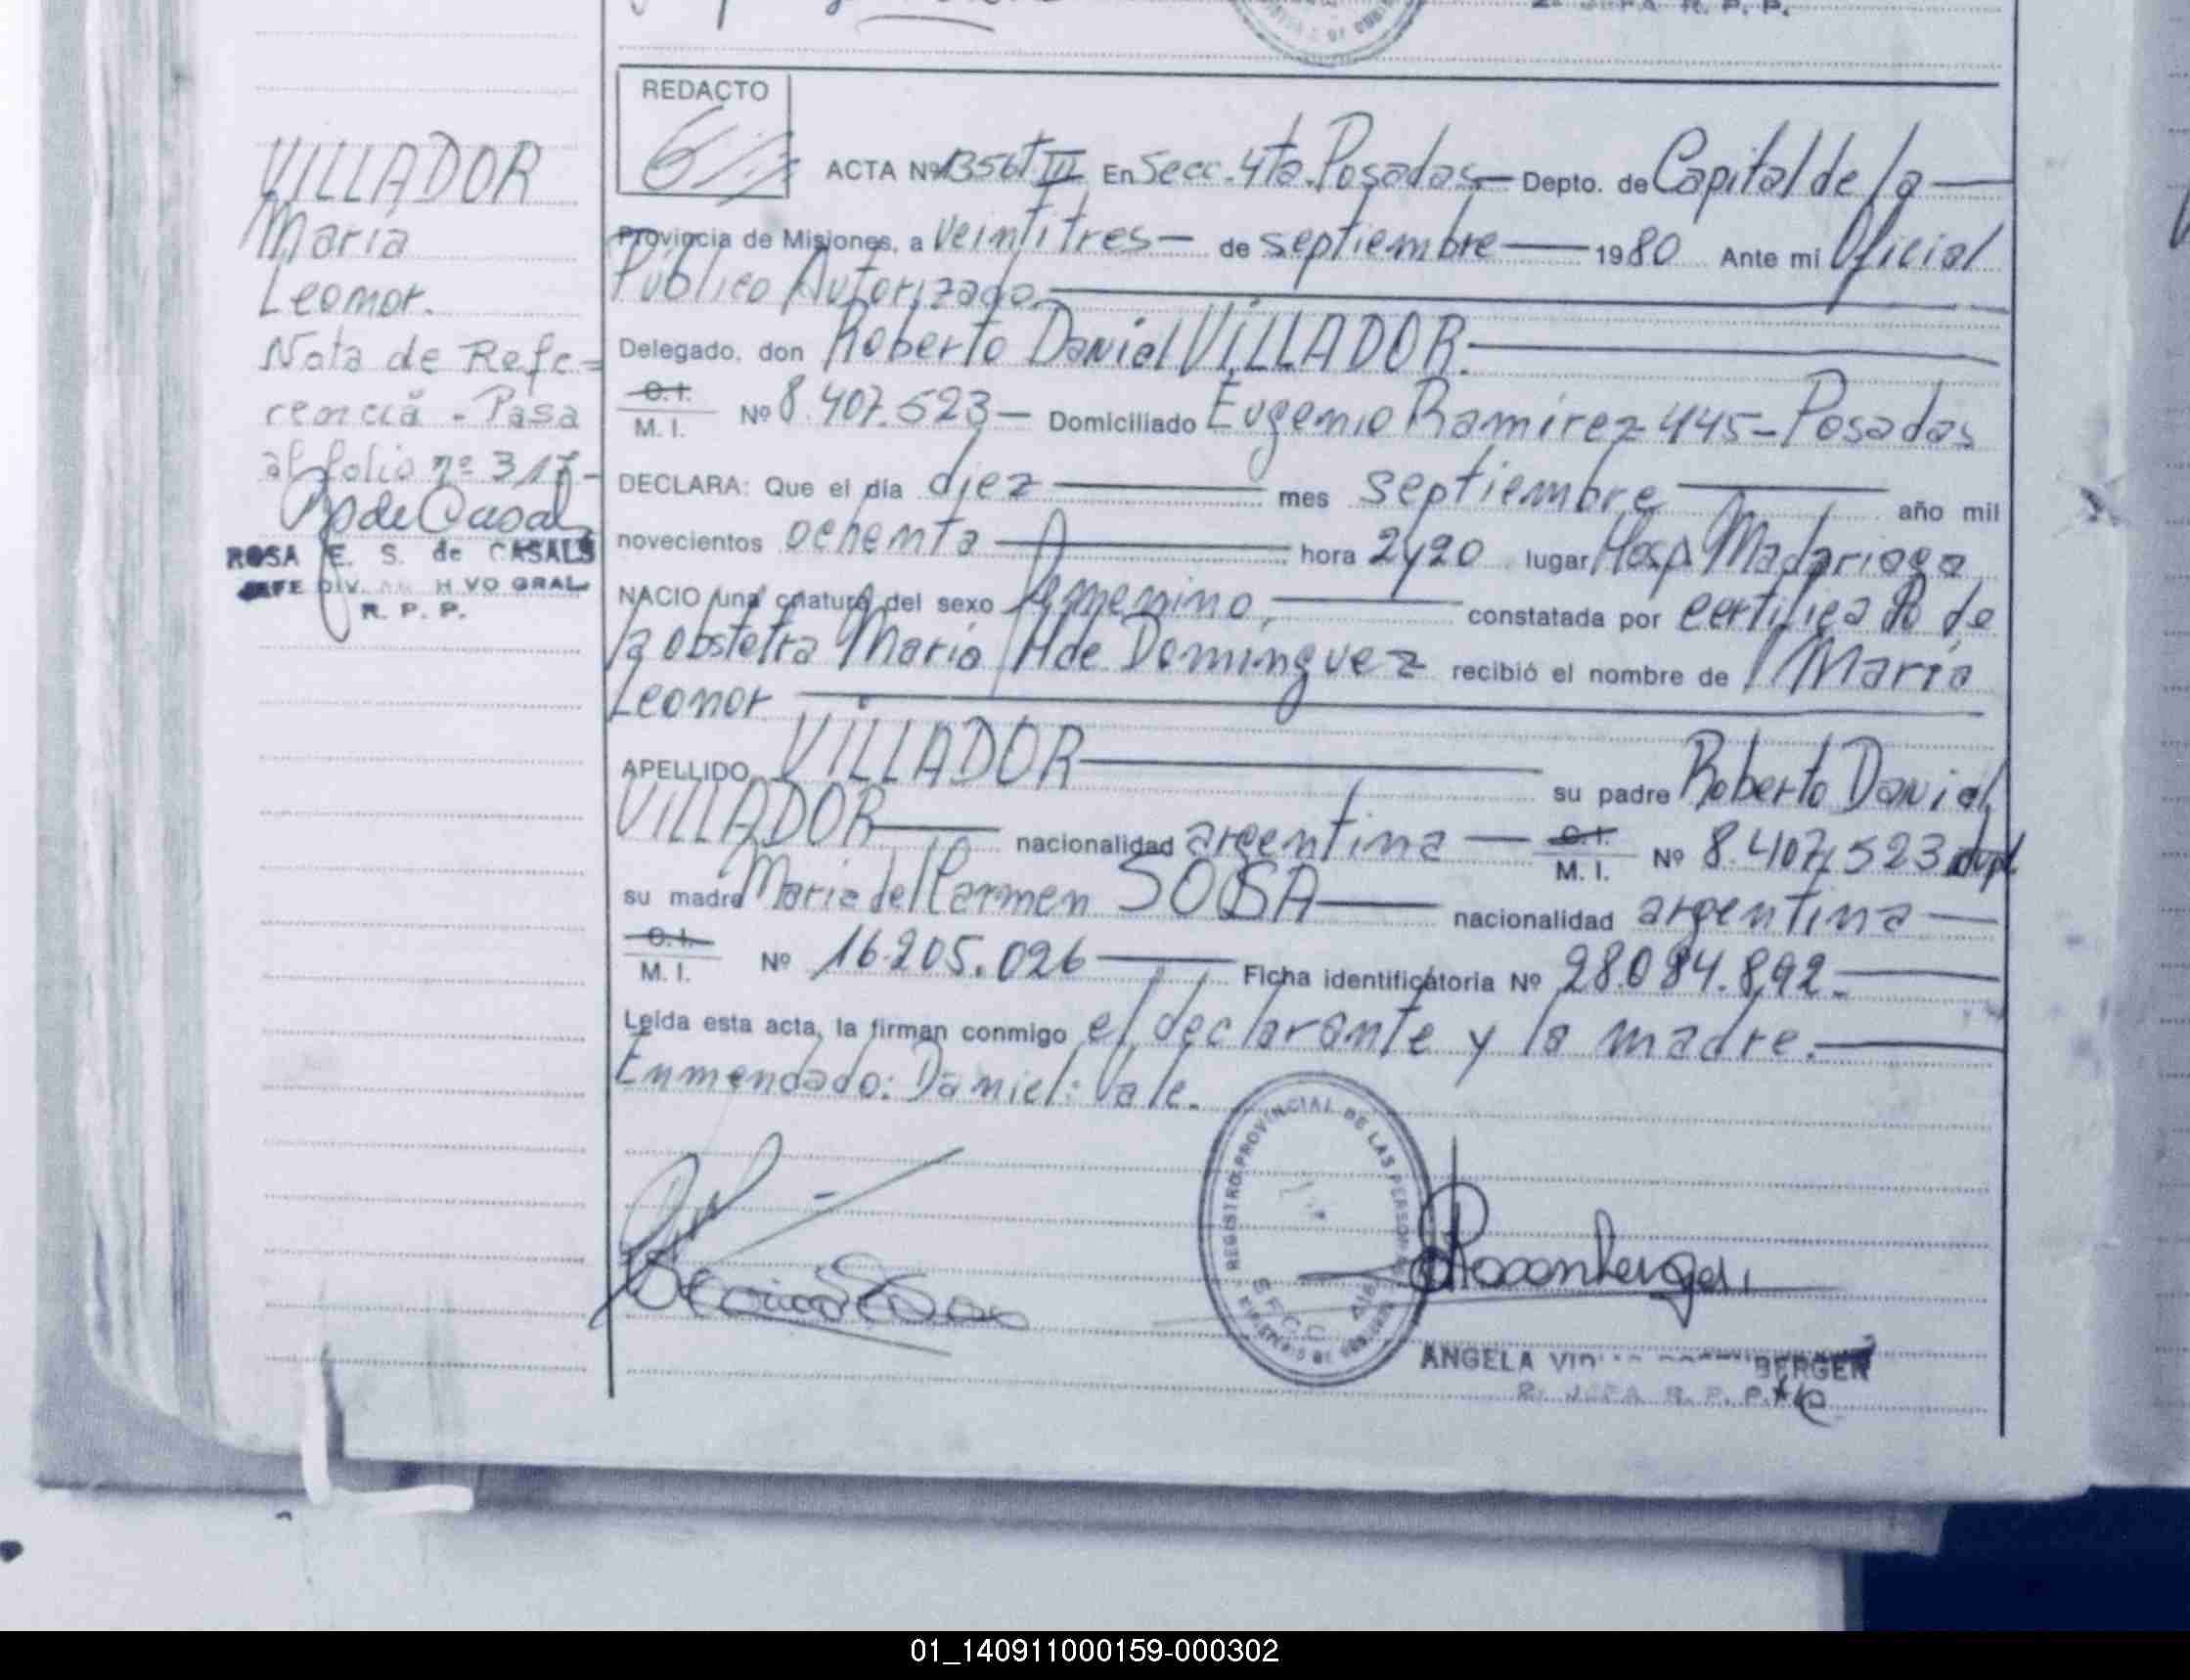 VILLADOR
Maria
Leonor.
Nota de Refe=
rencia - Pasa
al folio nº 317-
ROSA E. S. de CASALS
JEFE DIV. H VO GRAL
R. P. P.
REDACTO
ACTA Nº 1356 T III En Secc. 4ta. Posadas Depto. de Capital de la
Provincia de Misiones, a veintitres de septiembre 1980 Ante mi Oficial
Público Autorizado.
Delegado, don Roberto Daniel VILLADOR.
C. I.
M. I. Nº 8.407.523 Domiciliado Eugenio Ramirez 445 - Posadas
DECLARA: Que el día diez mes septiembre año mil
novecientos ochenta hora 2y20 lugar Hosp. Madariaga
NACIO una criatura del sexo femenino, constatada por certificado de
la obstetra Maria H de Dominguez recibió el nombre de Maria
Leonor
APELLIDO VILLADOR su padre Roberto Daniel
VILLADOR nacionalidad argentina C. I. M. I. Nº 8.407.523 dupl
su madre Maria del Carmen SOSA nacionalidad argentina
C. I.
M. I. Nº 16.205.026 Ficha identificatoria Nº 28.084.892.
Leída esta acta, la firman conmigo el declarante y la madre.
Enmendado: Daniel: Vale.
REGISTRO PROVINCIAL DE LAS PERSONAS
ANGELA BERGER
2. JEFA R. P. P.
01_140911000159-000302